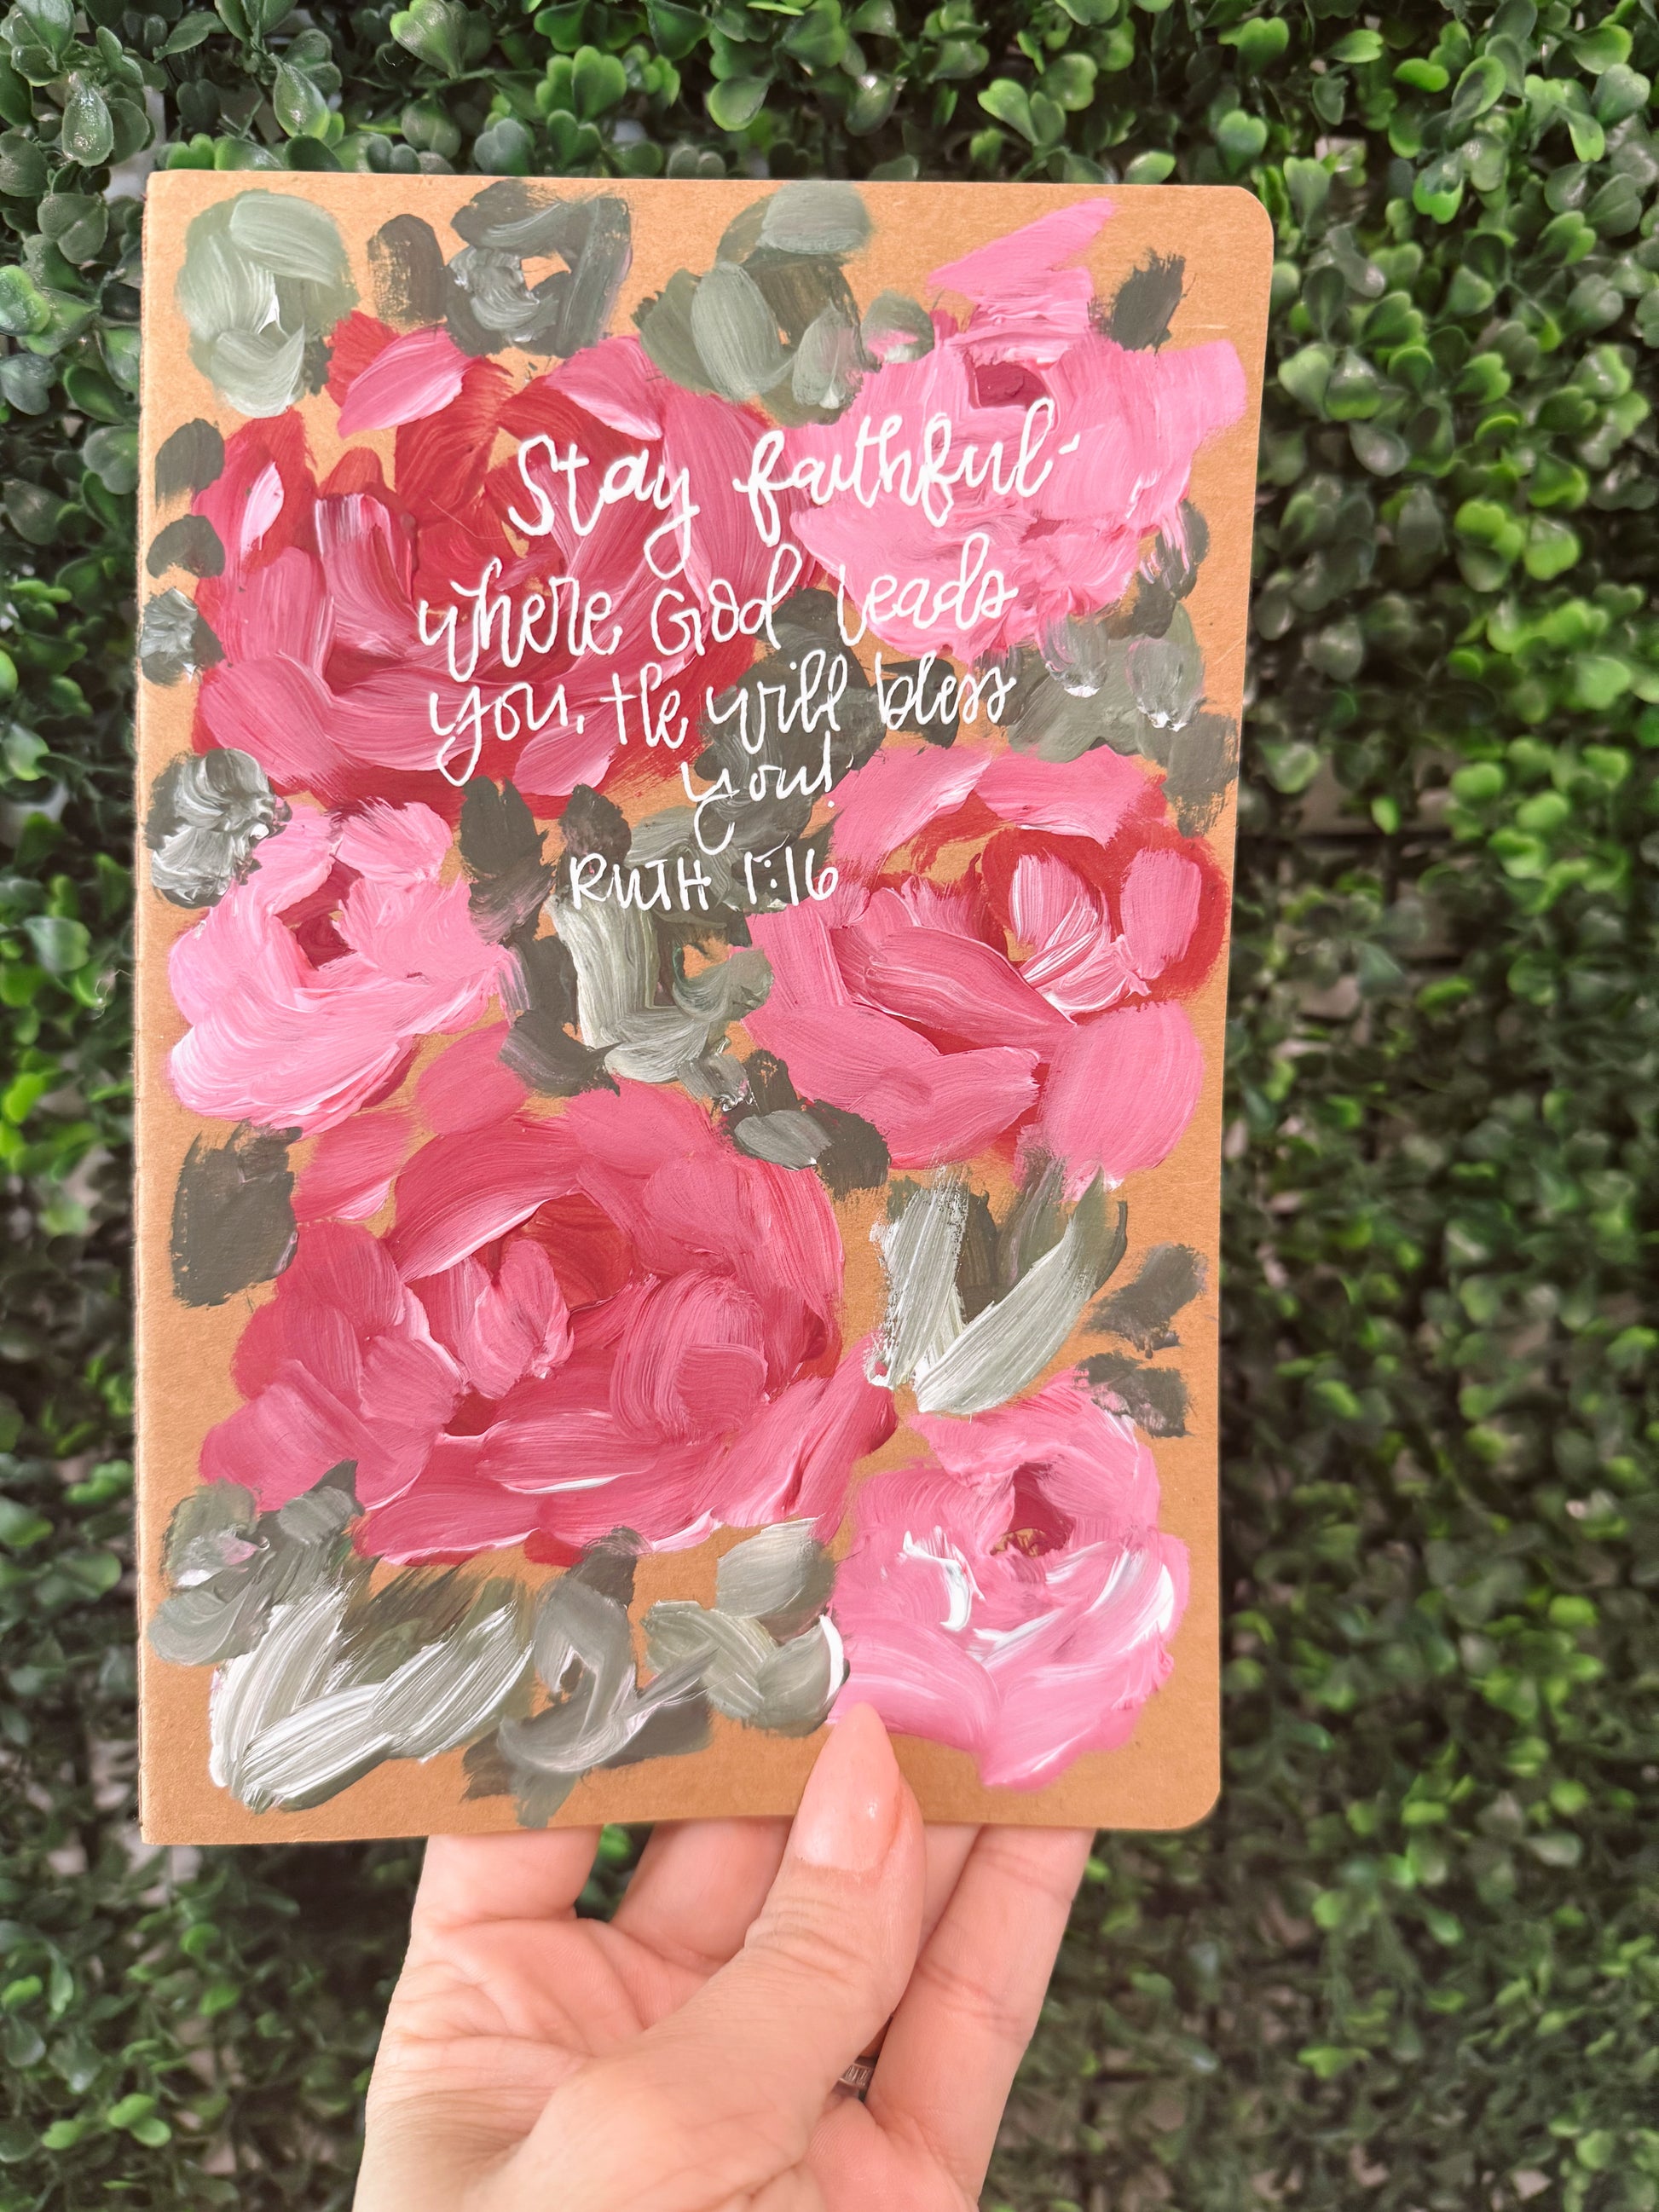 Stay faithful-
where God leads
you, He will bless
you!
RUTH 1:16